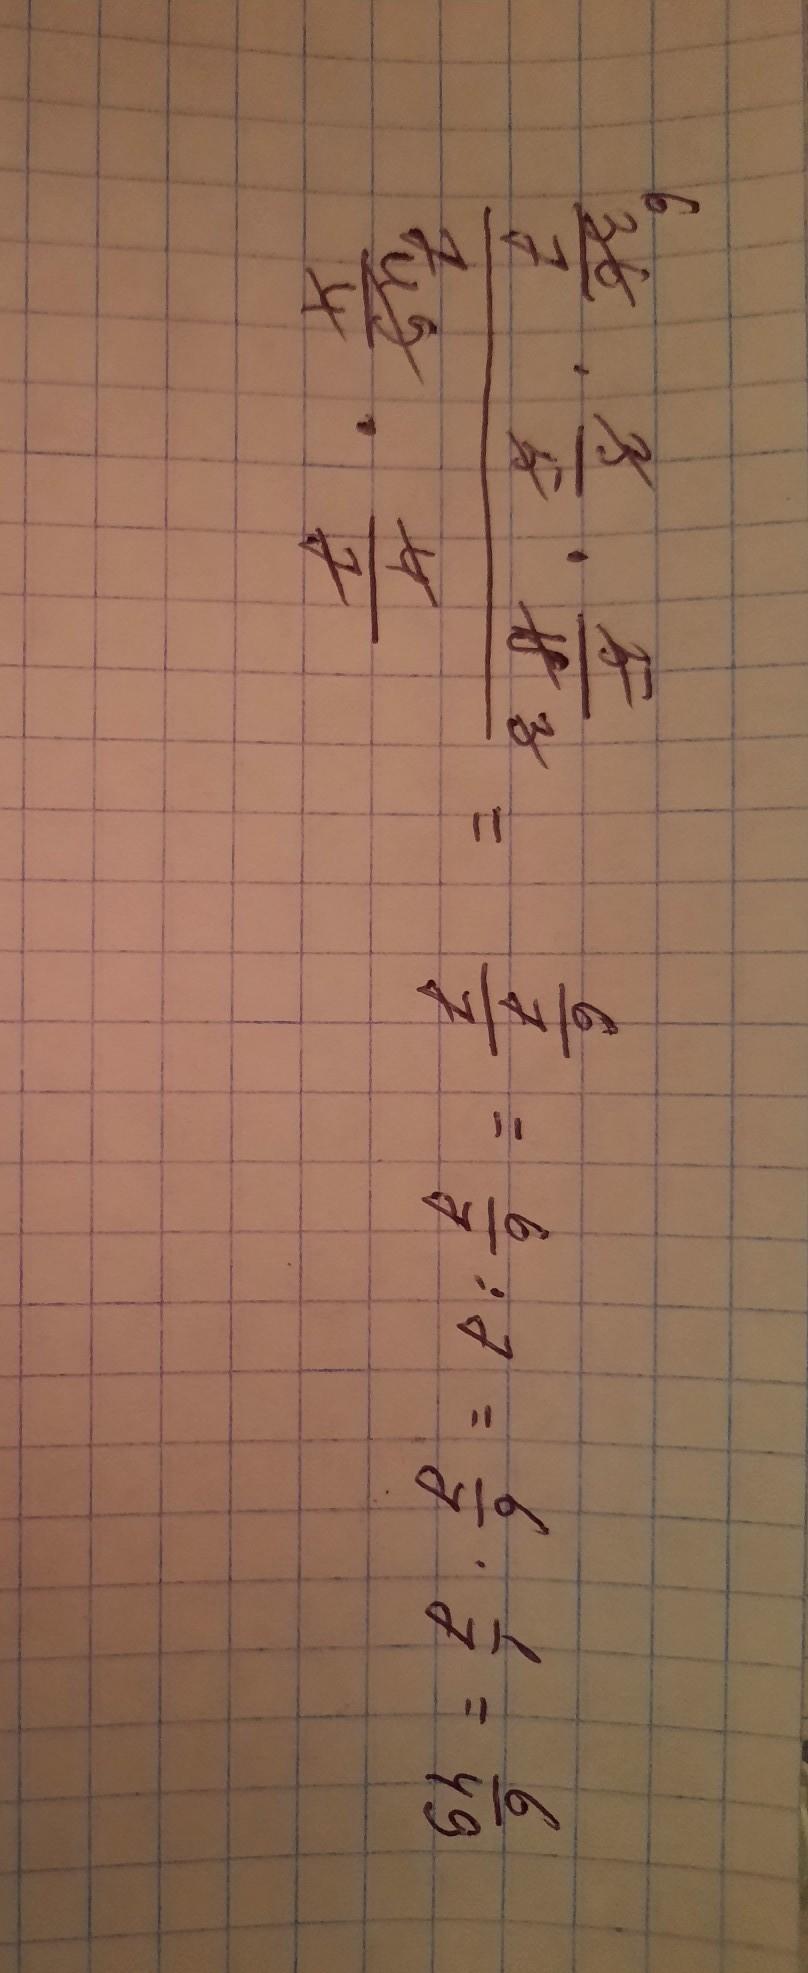 6
36/7 · 3/5 · 5/18 3
7 49/4 · 4/7
= 6/7/7 = 6/7 : 7 = 6/7 · 1/7 = 6/49